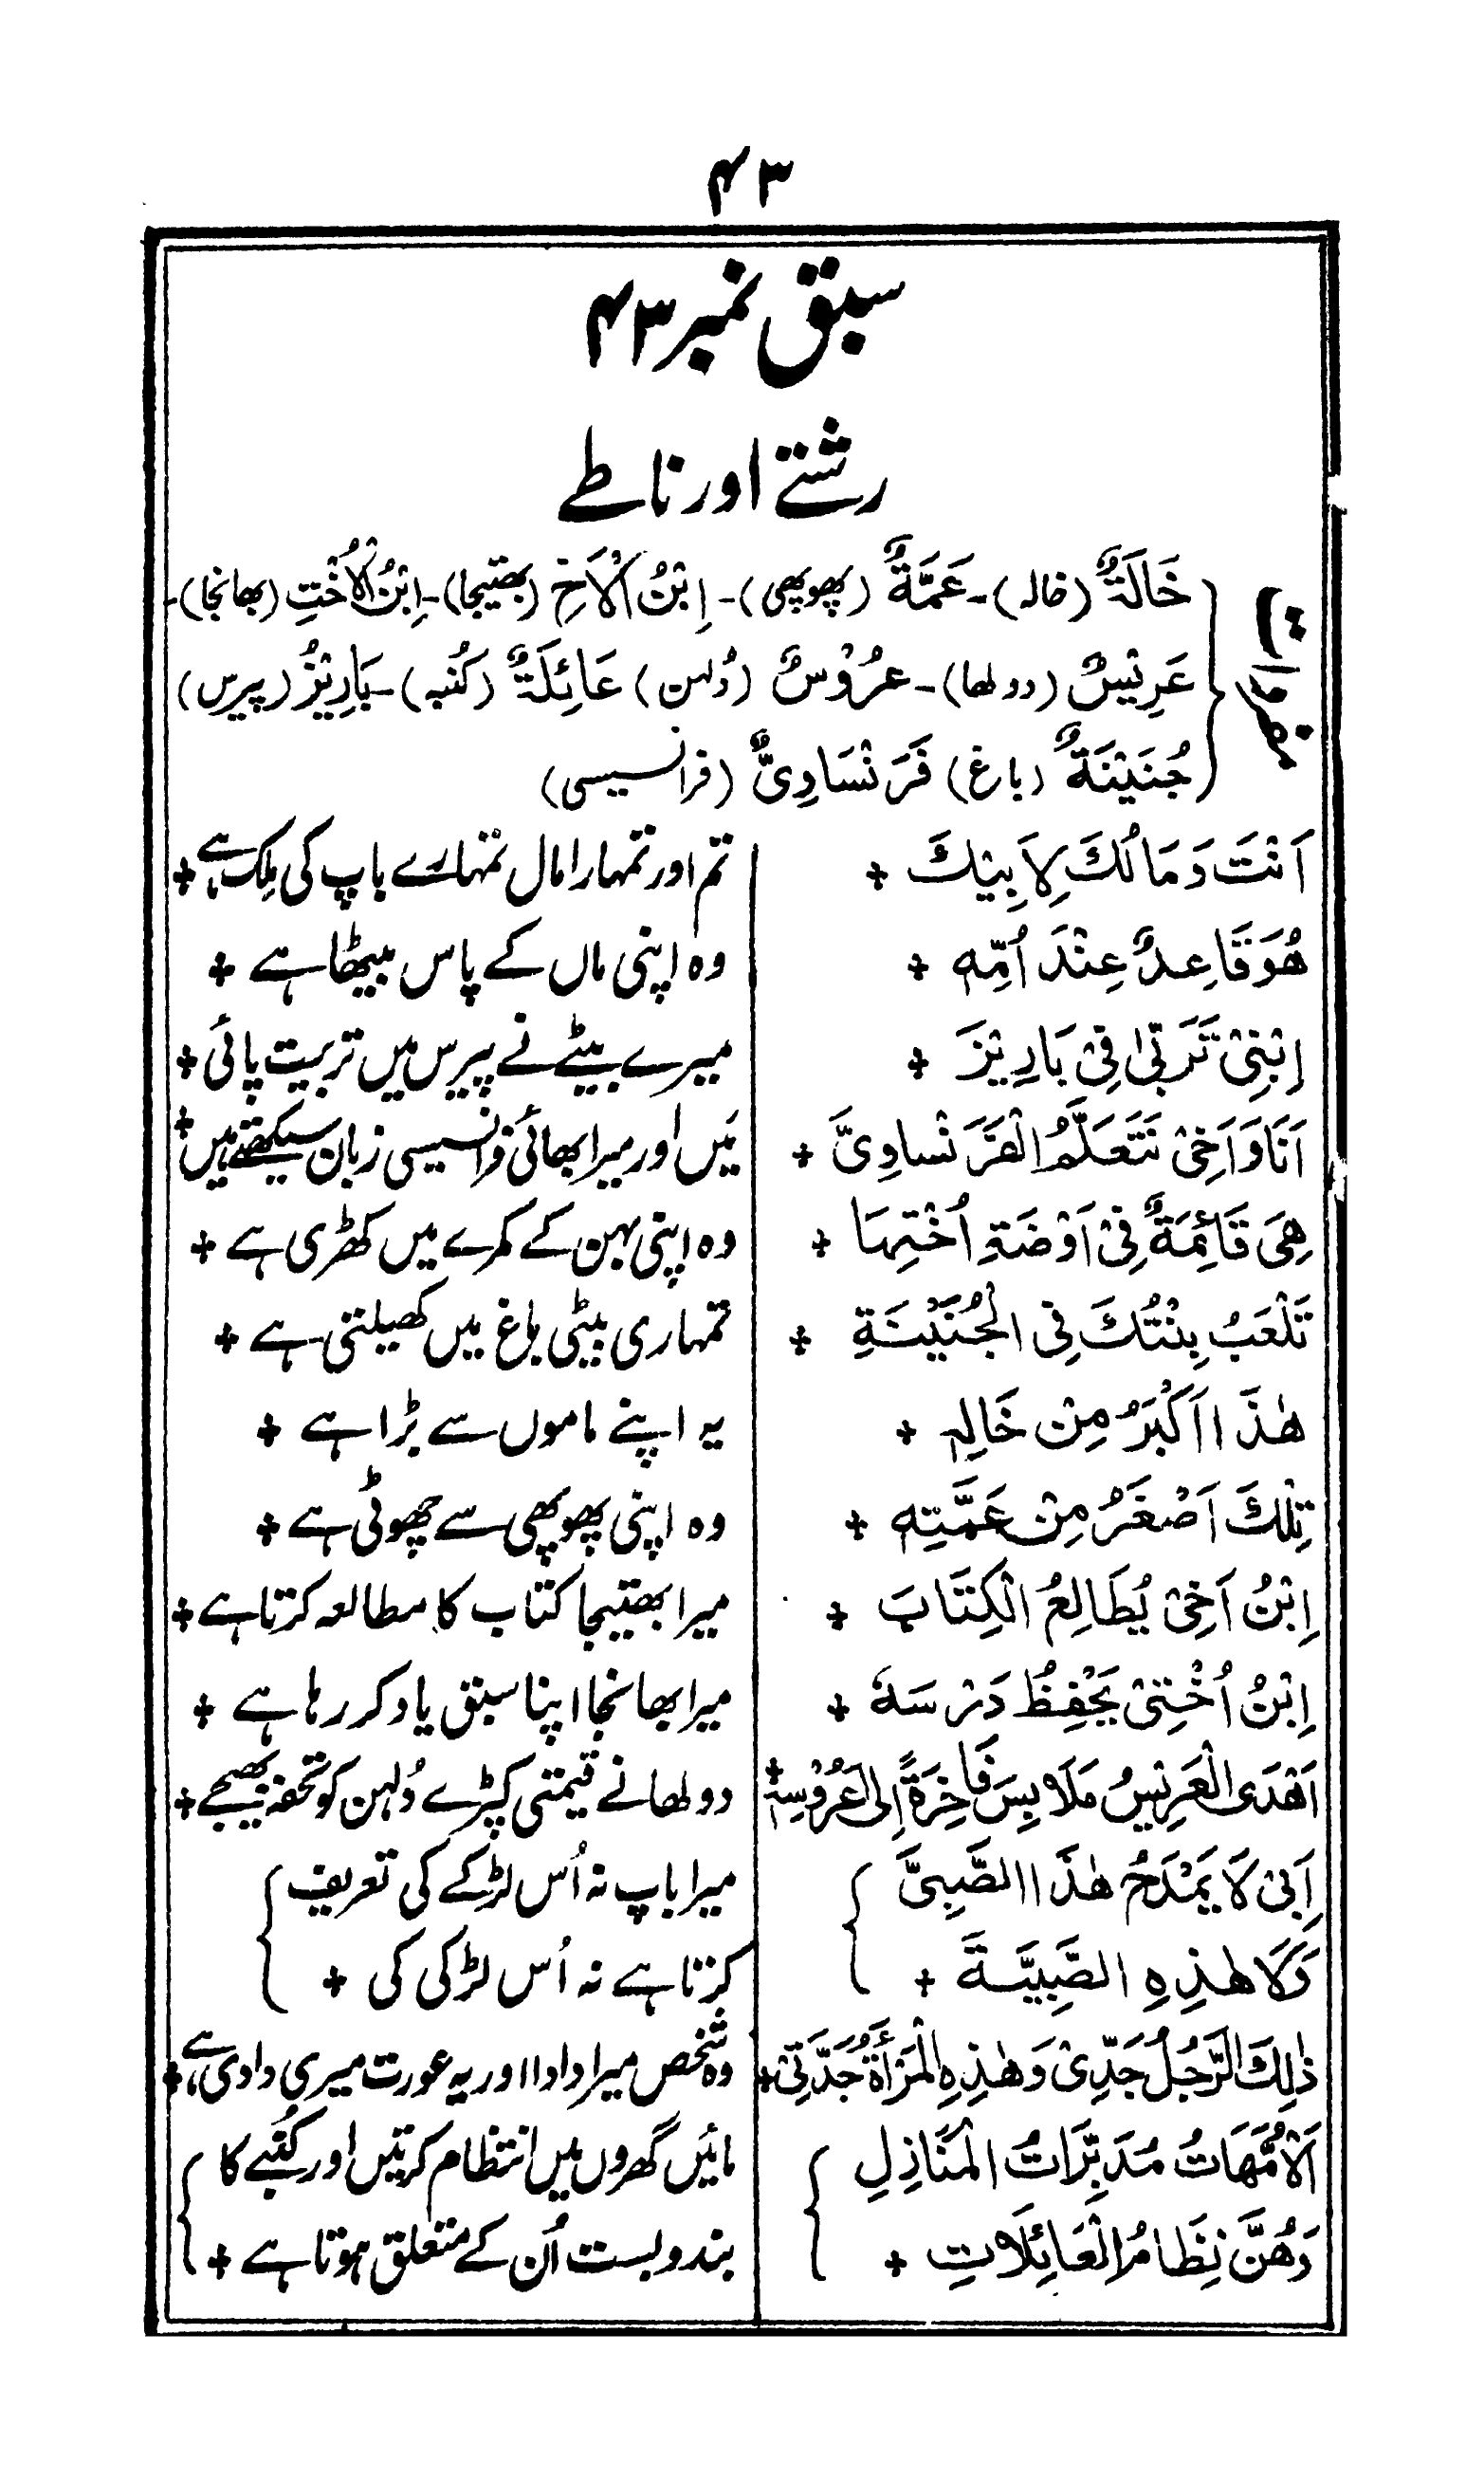 ۴۳
سبق نمبر ۴۳
رشتے اور ناطے
مفردات
خَالَةٌ (خالہ)۔ عَمَّةٌ (پھوپھی)۔ اِبْنُ الْاَخِ (بھتیجا)۔ اِبْنُ الْاُخْتِ (بھانجا)۔
عَرِيْسٌ (دولھا)۔ عُرُوْسٌ (دُلہن) عَائِلَةٌ (کُنبہ)۔ بَارِيْزُ (پیرس)
جُنَيْنَةٌ (باغ) فَرَنْسَاوِىٌّ (فرانسیسی)
اَنْتَ وَمَالُكَ لِاَبِيْكَ + تم اور تمہارا مال تمہارے باپ کی مِلک ہے +
هُوَ قَاعِدٌ عِنْدَ اُمِّهٖ + وہ اپنی ماں کے پاس بیٹھا ہے +
اِبْنِىْ تَرَبّٰى فِىْ بَارِيْزَ + میرے بیٹے نے پیرس میں تربیت پائی +
اَنَا وَاَخِىْ نَتَعَلَّمُ الْفَرَنْساوِىَّ + مَیں اور میرا بھائی فرانسیسی زبان سیکھتے ہیں +
هِىَ قَائِمَةٌ فِىْ اَوْضَةِ اُخْتِهَا + وہ اپنی بہن کے کمرے میں کھڑی ہے +
تَلْعَبُ بِنْتُكَ فِى الْجُنَيْنَةِ + تمہاری بیٹی باغ میں کھیلتی ہے +
هٰذَا اَكْبَرُ مِنْ خَالِهٖ + یہ اپنے ماموں سے بڑا ہے +
تِلْكَ اَصْغَرُ مِنْ عَمَّتِهٖ + وہ اپنی پھوپھی سے چھوٹی ہے +
اِبْنُ اَخِىْ يُطَالِعُ الْكِتَابَ + میرا بھتیجا کتاب کا مطالعہ کرتا ہے +
اِبْنُ اُخْتِىْ يَحْفِظُ دَرْسَهٗ + میرا بھانجا اپنا سبق یاد کر رہا ہے +
اَهْدَى الْعَرِيْسُ مَلَابِسَ فَاخِرَةً اِلَى الْعَرُوْسِهٖ + دولھا نے قیمتی کپڑے دُلہن کو تحفہ بھیجے +
اَبِىْ لَا يَمْدَحُ هٰذَا الصَّبِىَّ میرا باپ نہ اُس لڑکے کی تعریف
وَلَا هٰذِهِ الصَّبِيَّةَ + کرتا ہے نہ اُس لڑکی کی +
ذٰلِكَ الرَّجُلُ جَدِّىْ وَهٰذِهِ الْمَرْأَةُ جَدَّتِىْ + وہ شخص میرا دادا اور یہ عورت میری دادی ہے +
اَلْاُمَّهَاتُ مُدَبِّرَاتُ الْمَنَازِلِ مائیں گھروں میں انتظام کرتیں اور کُنبے کا
وَهُنَّ نِظَامُ الْعَائِلَاتِ + بندوبست اُن کے متعلق ہوتا ہے +